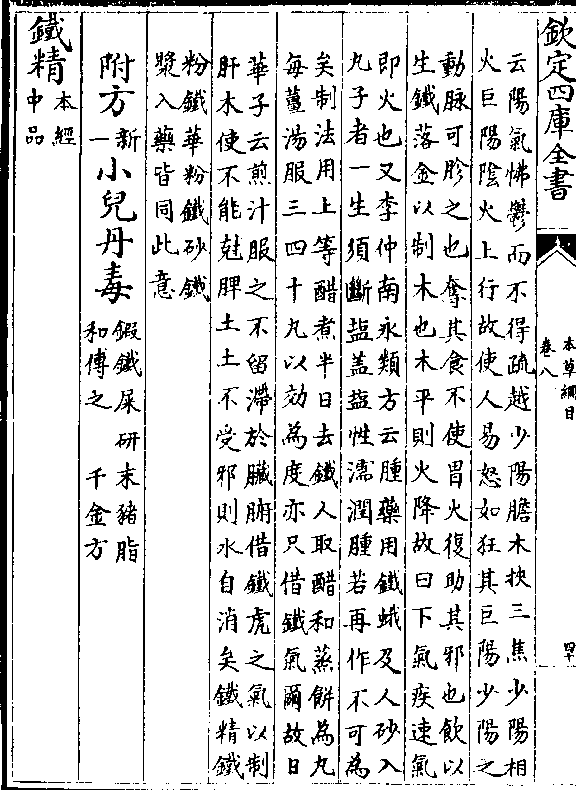 欽定四庫全書
本草綱目
卷八
四十
云陽氣怫鬱而不得疏越少陽膽木挾三焦少陽相
火巨陽陰火上行故使人易怒如狂其巨陽少陽之
動脈可胗之也奪其食不使胃火復助其邪也飲以
生鐵落金以制木也木平則火降故曰下氣疾速氣
即火也又李仲南永類方云腫藥用鐵蛾及人砂入
丸子者一生須斷塩盖塩性濡潤腫若再作不可為
矣制法用上等醋煮半日去鐵人取醋和蒸餅為丸
每薑湯服三四十丸以効為度亦只借鐵氣爾故日
華子云煎汁服之不留滯於臟腑借鐵虎之氣以制
肝木使不能尅脾土土不受邪則水自消矣鐵精鐵
粉鐵華粉鐵砂鐵
漿入藥皆同此意
附方新一小兒丹毒煆鐵屎研末豬脂和傅之 千金方
鐵精本經中品